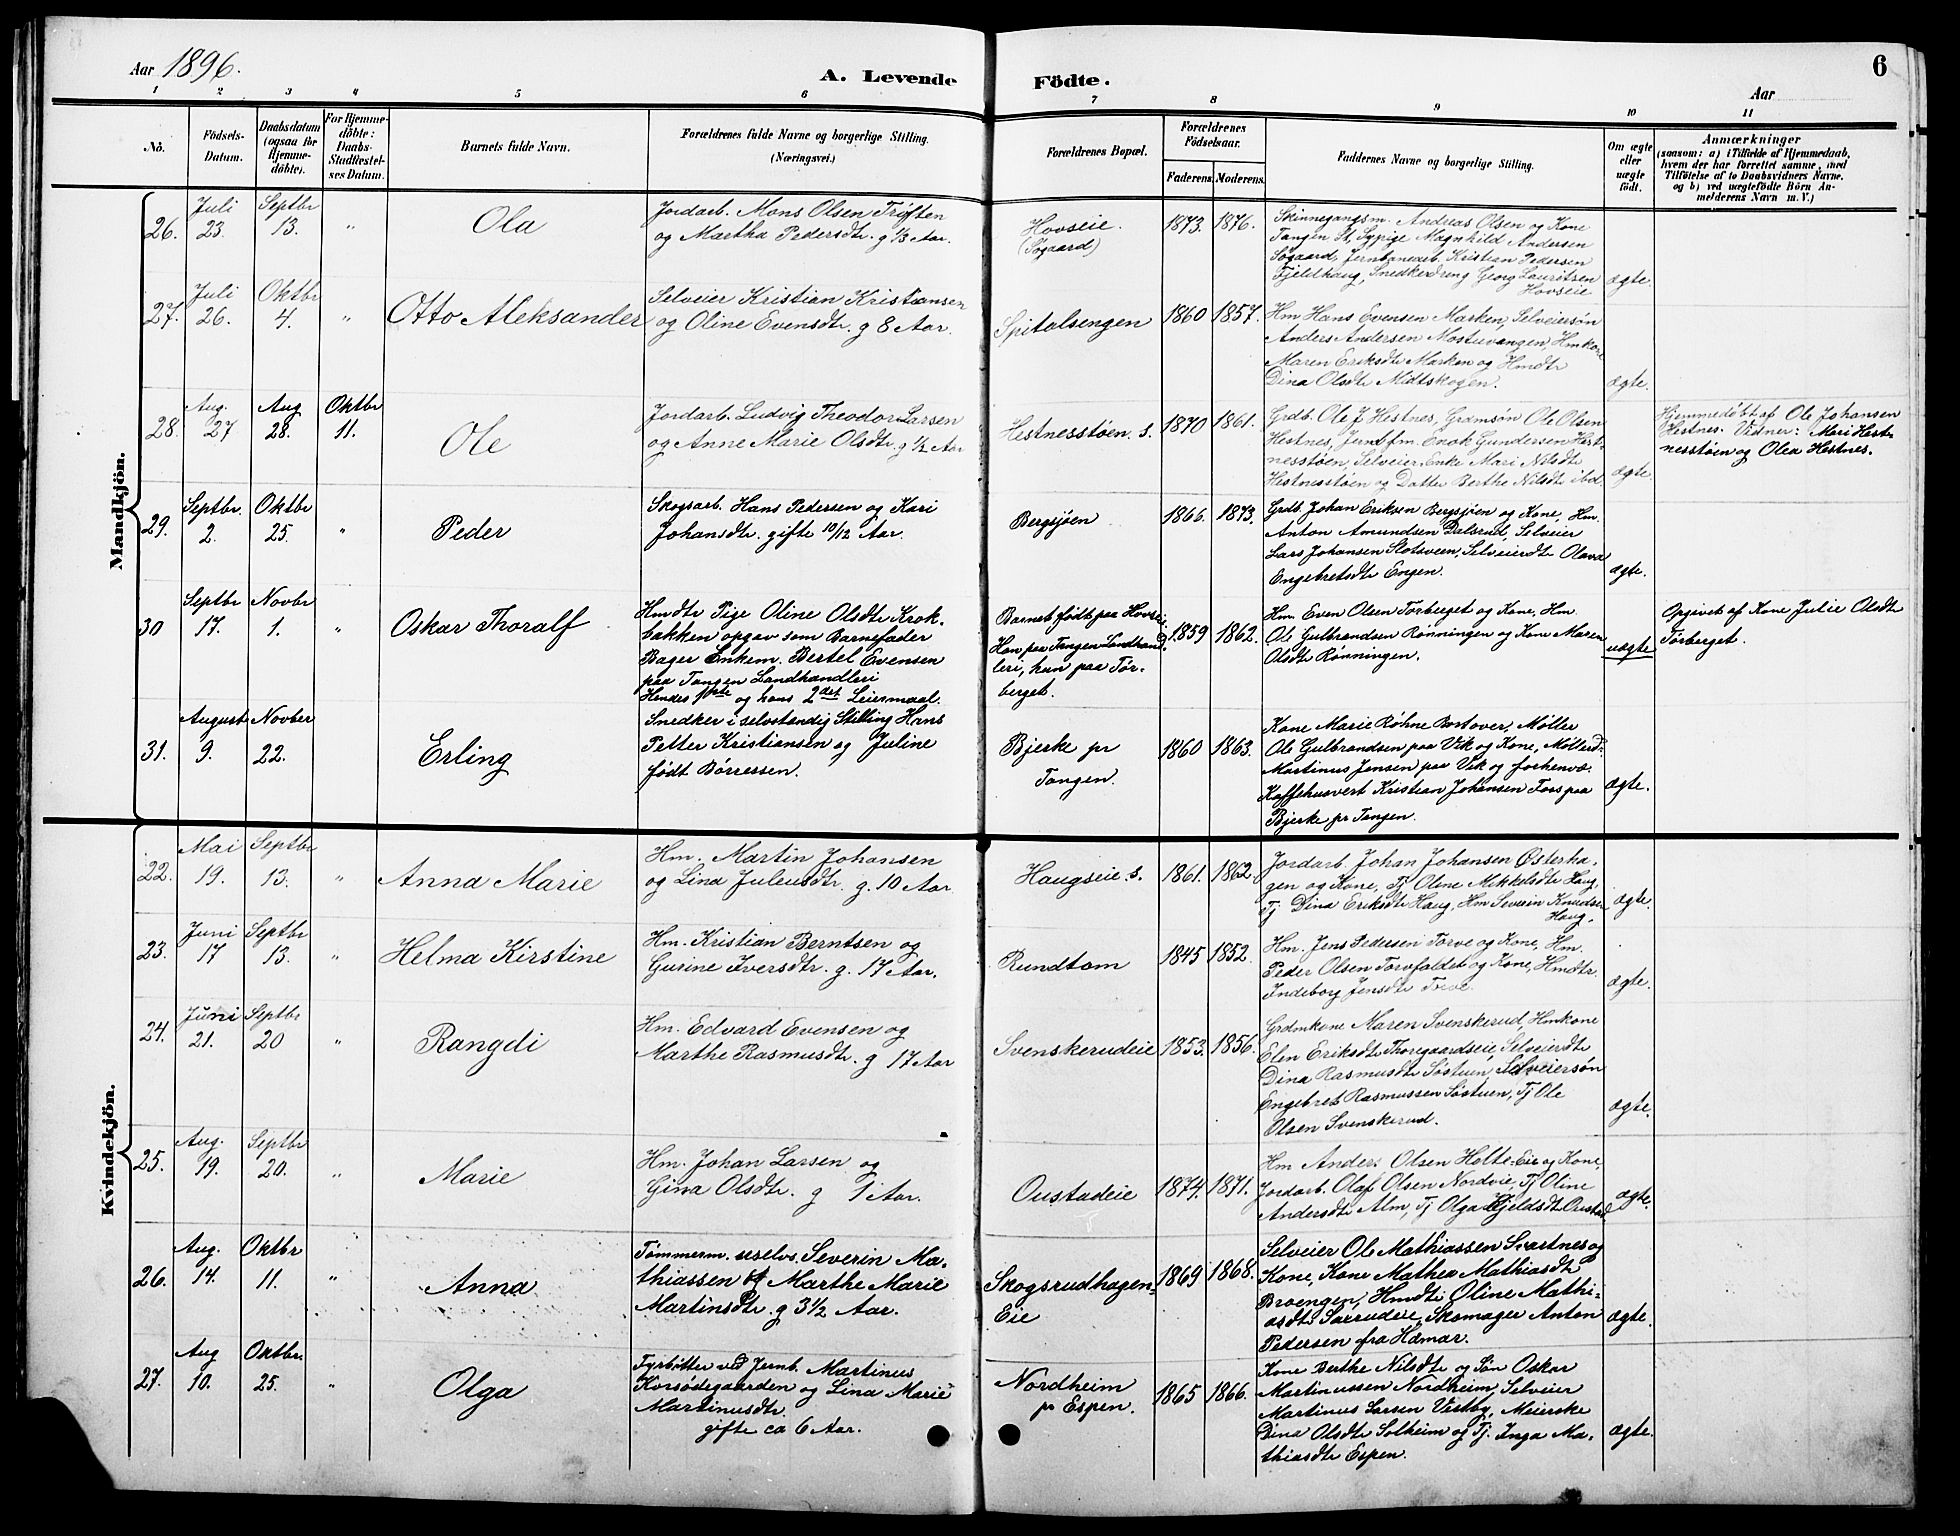 Aar 1896.
A. Levende Födte.
6
Aar
1 2 3 4 5 6 7 8 9 10 11
No.
Födsels-
Datum.
Daabsdatum
(ogsaa for
Hjemme-
döbte).
For Hjemme-
döbte:
Daabs-
Stadfæstel-
ses Datum.
Barnets fulde Navn.
Forældrenes fulde Navne og borgerlige Stilling.
(Næringsvei.)
Forældrenes Bopæl.
Forældrenes
Födselsaar.
Faderens. Moderens.
Faddernes Navne og borgerlige Stilling.
Om ægte
eller
uægte
födt.
Anmærkninger
(saasom: a) i Tilfælde af Hjemmedaab,
hvem der har forrettet samme, med
Tilföielse af to Daabsvidners Navne,
og b) ved uægtefödte Börn An-
melderens Navn m. V.)
Mandkjön.
26.
Juli
23.
Septbr
13.
"
Ola
Jordarb. Mons Olsen Trøften
og Martha Pedersdtr. g 1/3 Aar.
Hovseie.
(Søgaard)
1873. 1876.
Skinnegangsm. Andreas Olsen og Kone
Tangen St, Sypige Magnhild Andersen
Søgaard, Jernbanearb. Kristian Pedersen
Fjeldhaug, Snedkerdreng Georg Lauritsen
Hovseie
ægte.
27.
Juli
26.
Oktbr
4.
"
Otto Aleksander
Selveier Kristian Kristiansen
og Oline Evensdtr. g 8 Aar.
Spitalsengen
1860 1857.
Hm Hans Evensen Marken, Selveiersøn
Anders Andersen Mostuvangen, Hmkone
Maren Eriksdtr Marken og Hmdtr
Dina Olsdtr Midtskogen.
ægte.
28.
Aug.
27
Aug
28.
Oktbr
11.
Ole
Jordarb. Ludvig Theodor Larsen
og Anne Marie Olsdtr. g 1/2 Aar
Hestnesstøen. s.
1870 1861.
Grdb. Ole J Hestnes, Grdmsøn Ole Olsen
Hestnes, Jernbfm. Enok Gundersen Hest-
nesstøen, Selveier Enke Mari Nilsdtr
Hestnesstøen og Datter Berthe Nilsdtr ibd.
ægte.
Hjemmedøbt af Ole Johansen
Hestnes. Vidner: Mari Hest-
nesstøen og Olea Hestnes.
29.
Septbr.
2.
Oktbr
25.
"
Peder
Skogsarb. Hans Pedersen og Kari
Johansdtr. gifte 10/12 Aar.
Bergsjøen
1866. 1873.
Grdb. Johan Eriksen Bergsjøen og Kone, Hm.
Anton Amundsen Dalsrud, Selveier
Lars Johansen Slotsveen, Selveierdtr Olava
Engebretsdtr Engen.
ægte.
30
Septbr
17.
Novbr
1.
"
Oskar Thoralf
Hmdtr Pige Oline Olsdtr Krok-
bakken opgav som Barnefader
Bager Enkem. Bertel Evensen
paa Tangen Landhandleri
Hendes 1ste og hans 2det Leiermaal.
Barnet født paa Hovsei.
Han paa Tangen Landhand-
leri, hun paa Tør-
berget.
1859 1862.
Hm. Even Olsen Torberget og Kone, Hm.
Ole Gulbrandsen Rønningen og Kone Maren
Olsdtr Rønningen.
uægte
Opgivet af Kone Julie Olsdtr
Torberget.
31.
August
9.
Novber
22.
Erling
Snedker i selvstændig Stilling Hans
Petter Kristiansen og Juline
født Børressen.
Bjerke pr
Tangen.
1860 1863.
Kone Marie Røhne Bostover, Møller
Ole Gulbrandsen paa Vik og Kone, Møllerd.
Martinus Jensen paa Vik og forhenvæ.
Kaffehusvert Kristian Johansen Foss paa
Bjerke pr Tangen.
ægte.
Kvindekjön.
22.
Mai
19.
Septbr
13.
"
Anna Marie
Hm. Martin Johansen
og Lina Juleusdtr. g. 10 Aar.
Haugseie. s.
1861. 1862.
Jordarb. Johan Johansen Østerha-
gen og Kone, Tj Oline Mikkelsdtr Haug,
Tj Dina Eriksdtr Haug, Hm Severin Knudsen
Haug.
ægte.
23.
Juni
17
Septbr
13.
"
Helma Kirstine
Hm. Kristian Berntsen og
Gurine Iversdtr. g. 17 Aar.
Rundtom
1845 1852.
Hm. Jens Pedersen Torve og Kone, Hm.
Peder Olsen Torvfaldet og Kone, Hmdtr
Indeborg Jensdtr Torve.
ægte.
24.
Juni
21.
Septbr
20
"
Rangdi
Hm. Edvard Evensen og
Marthe Rasmusdtr. g 17 Aar
Svenskerudeie
1853. 1856.
Grdmkone Maren Svenskerud, Hmkone
Elen Eriksdtr Thoregaardseie, Selveierdtr
Dina Rasmusdtr Søstuen, Selveiersøn
Engebret Rasmussen Søstuen, Tj Ole
Olsen Svenskerud.
ægte.
25.
Aug.
19.
Septbr
20.
"
Marie
Hm. Johan Larsen og
Gina Olsdtr. g 1 Aar.
Oustadeie
1874. 1871.
Hm Anders Olsen Holte-Eie og Kone,
Jordarb. Olaf Olsen Nordvie, Tj Oline
Andersdtr Alm, Tj Olga Kjeldsdtr Oustad
ægte.
26.
Aug.
14.
Oktbr
11.
"
Anna
Tømmerm. uselvs. Severin Ma-
thiassen og Marthe Marie
Martinsdtr. g 3 1/2 Aar.
Skogsrudhagen-
Eie
1869 1868.
Selveier Ole Mathiassen Svartnes og
Kone, Kone Mathea Mathiasdtr
Broengen, Hmdtr Oline Mathi-
asdtr Sørrudeie, Skomager Anton
Pedersen fra Hamar.
ægte.
27.
Aug
10.
Oktbr.
25.
"
Olga
Fyrbøtter ved Jernb. Martinus
Korsødegaarden og Lina Marie
Martinusdtr.
gifte ca 6 Aar.
Nordheim
pr Espen.
1865 1866.
Kone Berthe Nilsdtr og Søn Oskar
Martinussen Nordheim, Selveier
Martinus Larsen Vestby, Meierske
Dina Olsdtr Solheim og Tj. Inga Ma-
thiasdtr Espen.
ægte.